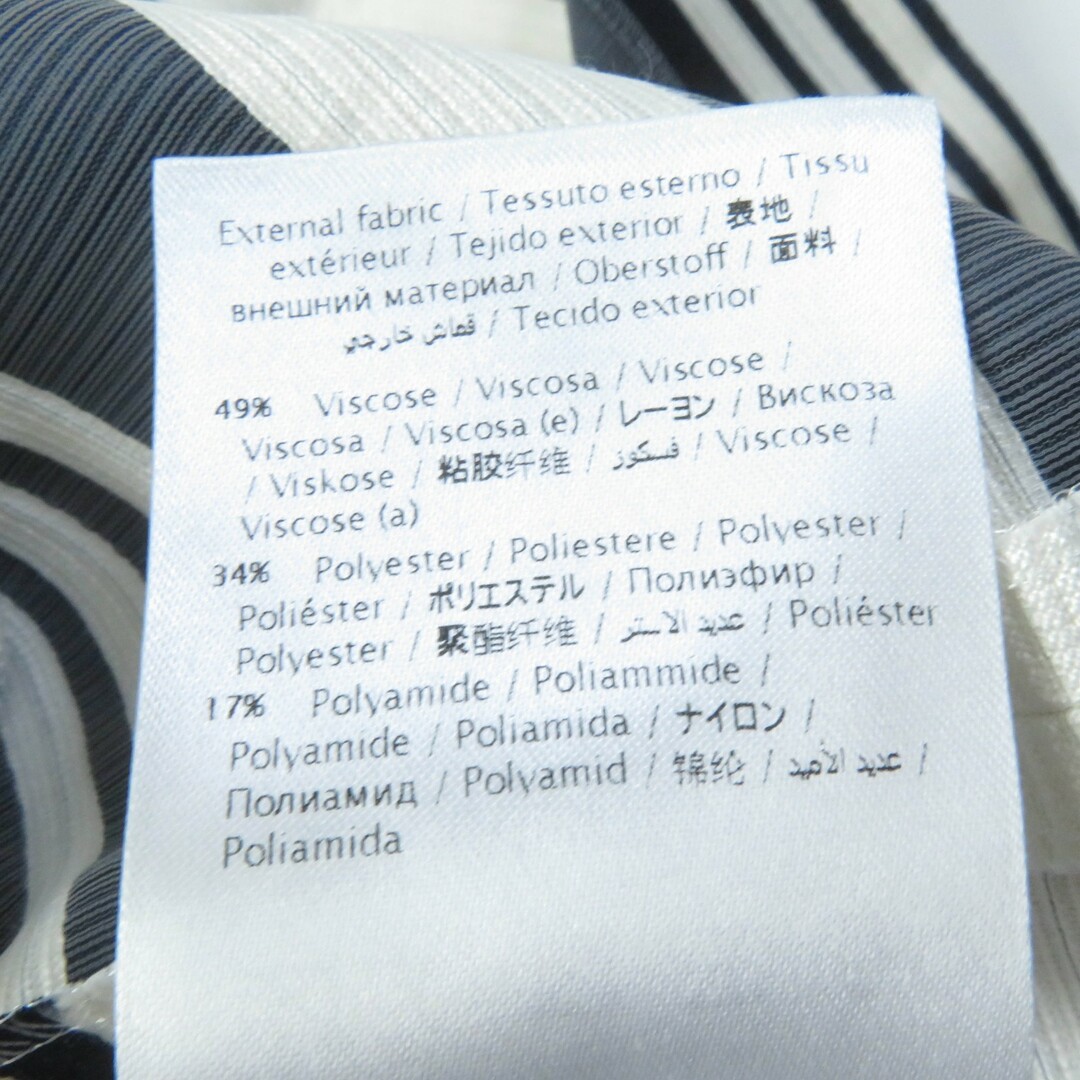 External fabric / Tessuto esterno / Tissu
extérieur / Tejido exterior / 表地 /
внешний материал / Oberstoff / 面料 /
قماش خارجي / Tecido exterior
49% Viscose / Viscosa / Viscose /
Viscosa / Viscosa (e) / レーヨン / Вискоза
/ Viskose / 粘胶纤维 / فسكوز / Viscose /
Viscose (a)
34% Polyester / Poliestere / Polyester /
Poliéster / ポリエステル / Полиэфир /
Polyester / 聚酯纤维 / عديد الاستر / Poliéster
17% Polyamide / Poliammide /
Polyamide / Poliamida / ナイロン /
Полиамид / Polyamid / 锦纶 / عديد الأميد /
Poliamida